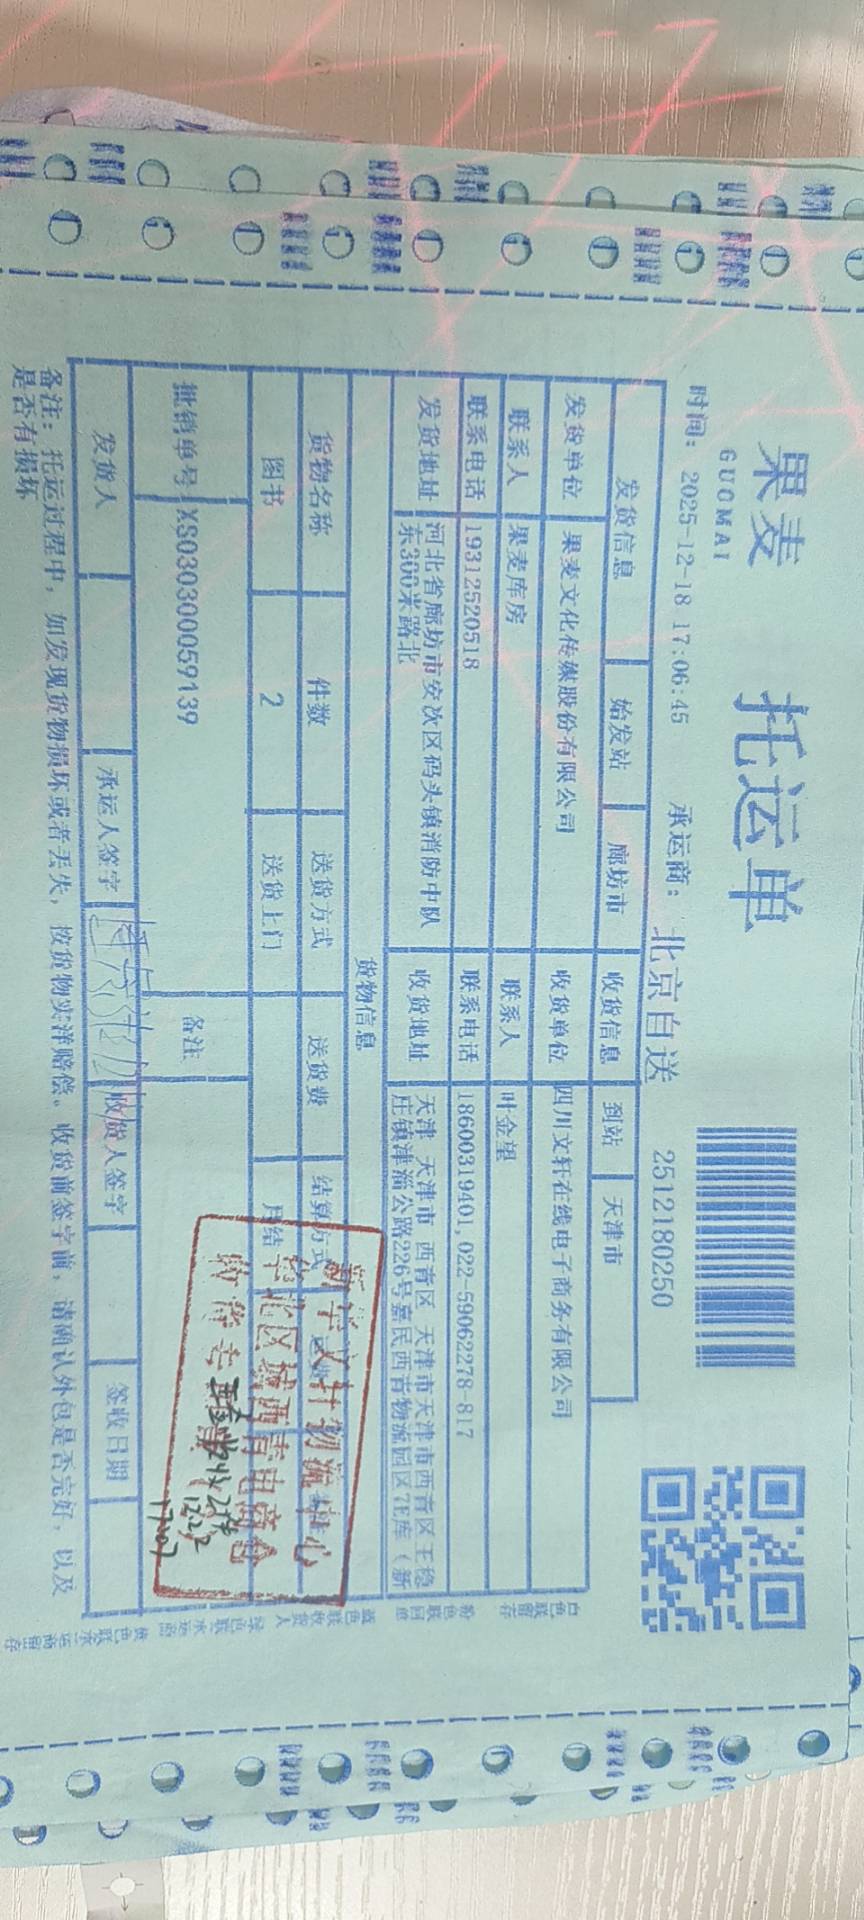 果麦
GUOMAI
托运单
时间: 2025-12-18 17:06:45 承运商: 北京自送 2512180250
发货信息 始发站 廊坊市 收货信息 到站 天津市
发货单位 果麦文化传媒股份有限公司 收货单位 四川文轩在线电子商务有限公司
联系人 果麦库房 联系人 叶金望
联系电话 19312520518 联系电话 18600319401,022-59062278-817
发货地址 河北省廊坊市安次区码头镇消防中队
东300米路北
收货地址 天津 天津市 西青区 天津市天津市西青区王稳
庄镇津淄公路226号嘉民西青物流园区7E库(新
货物信息
货物名称 件数 送货方式 送货费 结算方式
图书 2 送货上门 月结
批销单号 XS030300059139 备注
新华文轩物流中心
华北区域西青电商仓
收货专
发货人 承运人签字 收货人签字 签收日期
备注: 托运过程中, 如发现货物损坏或者丢失, 按货物实洋赔偿。收货前签字前, 请确认外包是否完好, 以及
是否有损坏
白色联留存
粉色联回单
蓝色联收货人
绿色联承运商
黄色联承运商留存